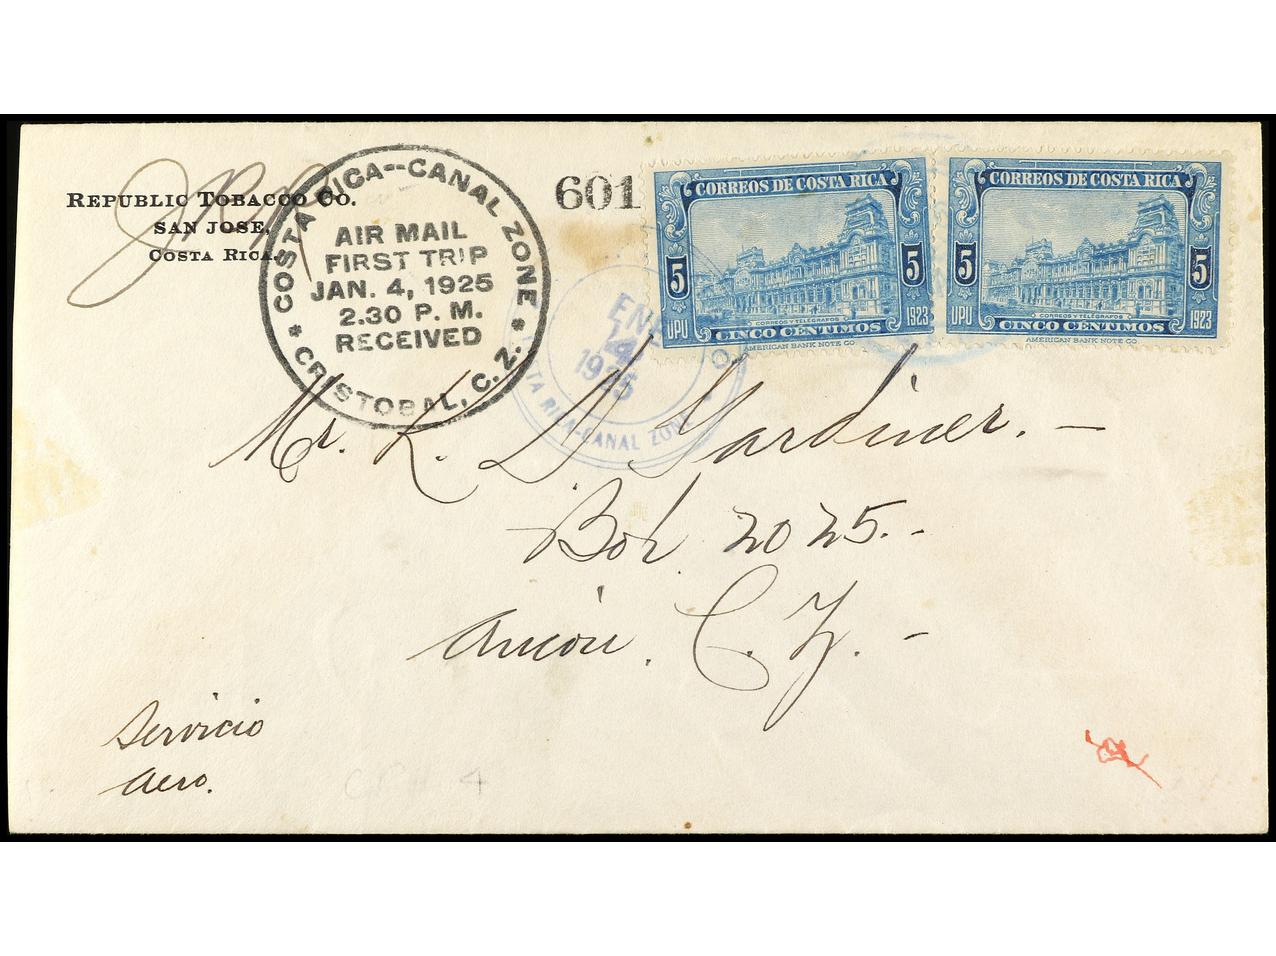 REPUBLIC TOBACCO CO.
SAN JOSE,
COSTA RICA.
COSTA RICA--CANAL ZONE
AIR MAIL
FIRST TRIP
JAN. 4, 1925
2.30 P. M.
RECEIVED
* CRISTOBAL, C. Z. *
601
ENE
4
1925
COSTA RICA-CANAL ZONE
CORREOS DE COSTA RICA
5 5
CORREOS Y TELEGRAFOS
UPU CINCO CÉNTIMOS 1923
AMERICAN BANK NOTE CO
CORREOS DE COSTA RICA
5 5
CORREOS Y TELEGRAFOS
UPU CINCO CÉNTIMOS 1923
AMERICAN BANK NOTE CO
Mr. K. D. Gardiner. –
Box 2025.-
Ancon. C. Z. -
Servicio
Aero.